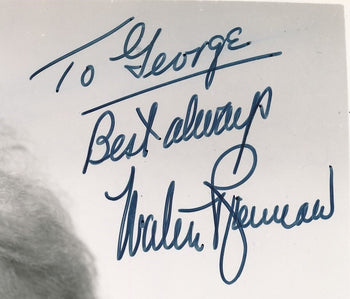 To George
Best always
Walter Brennan